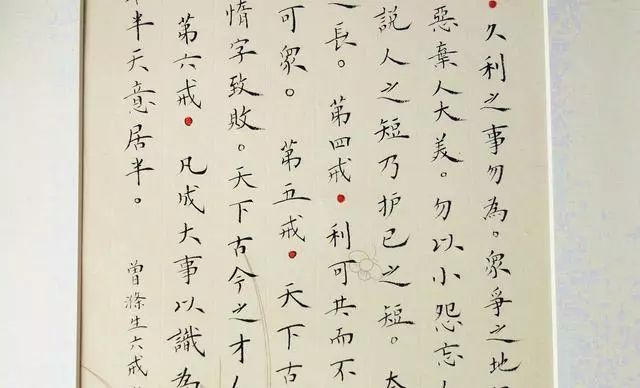 ·久利之事勿為。眾爭之地
惡棄人大美。勿以小怨忘人
說人之短乃护己之短。
之長。第四戒·利可共而不
可眾。第五戒·天下古
惰字致敗。天下古今之才人
第六戒·凡成大事以識為
半天意居半。
曾滌生六戒